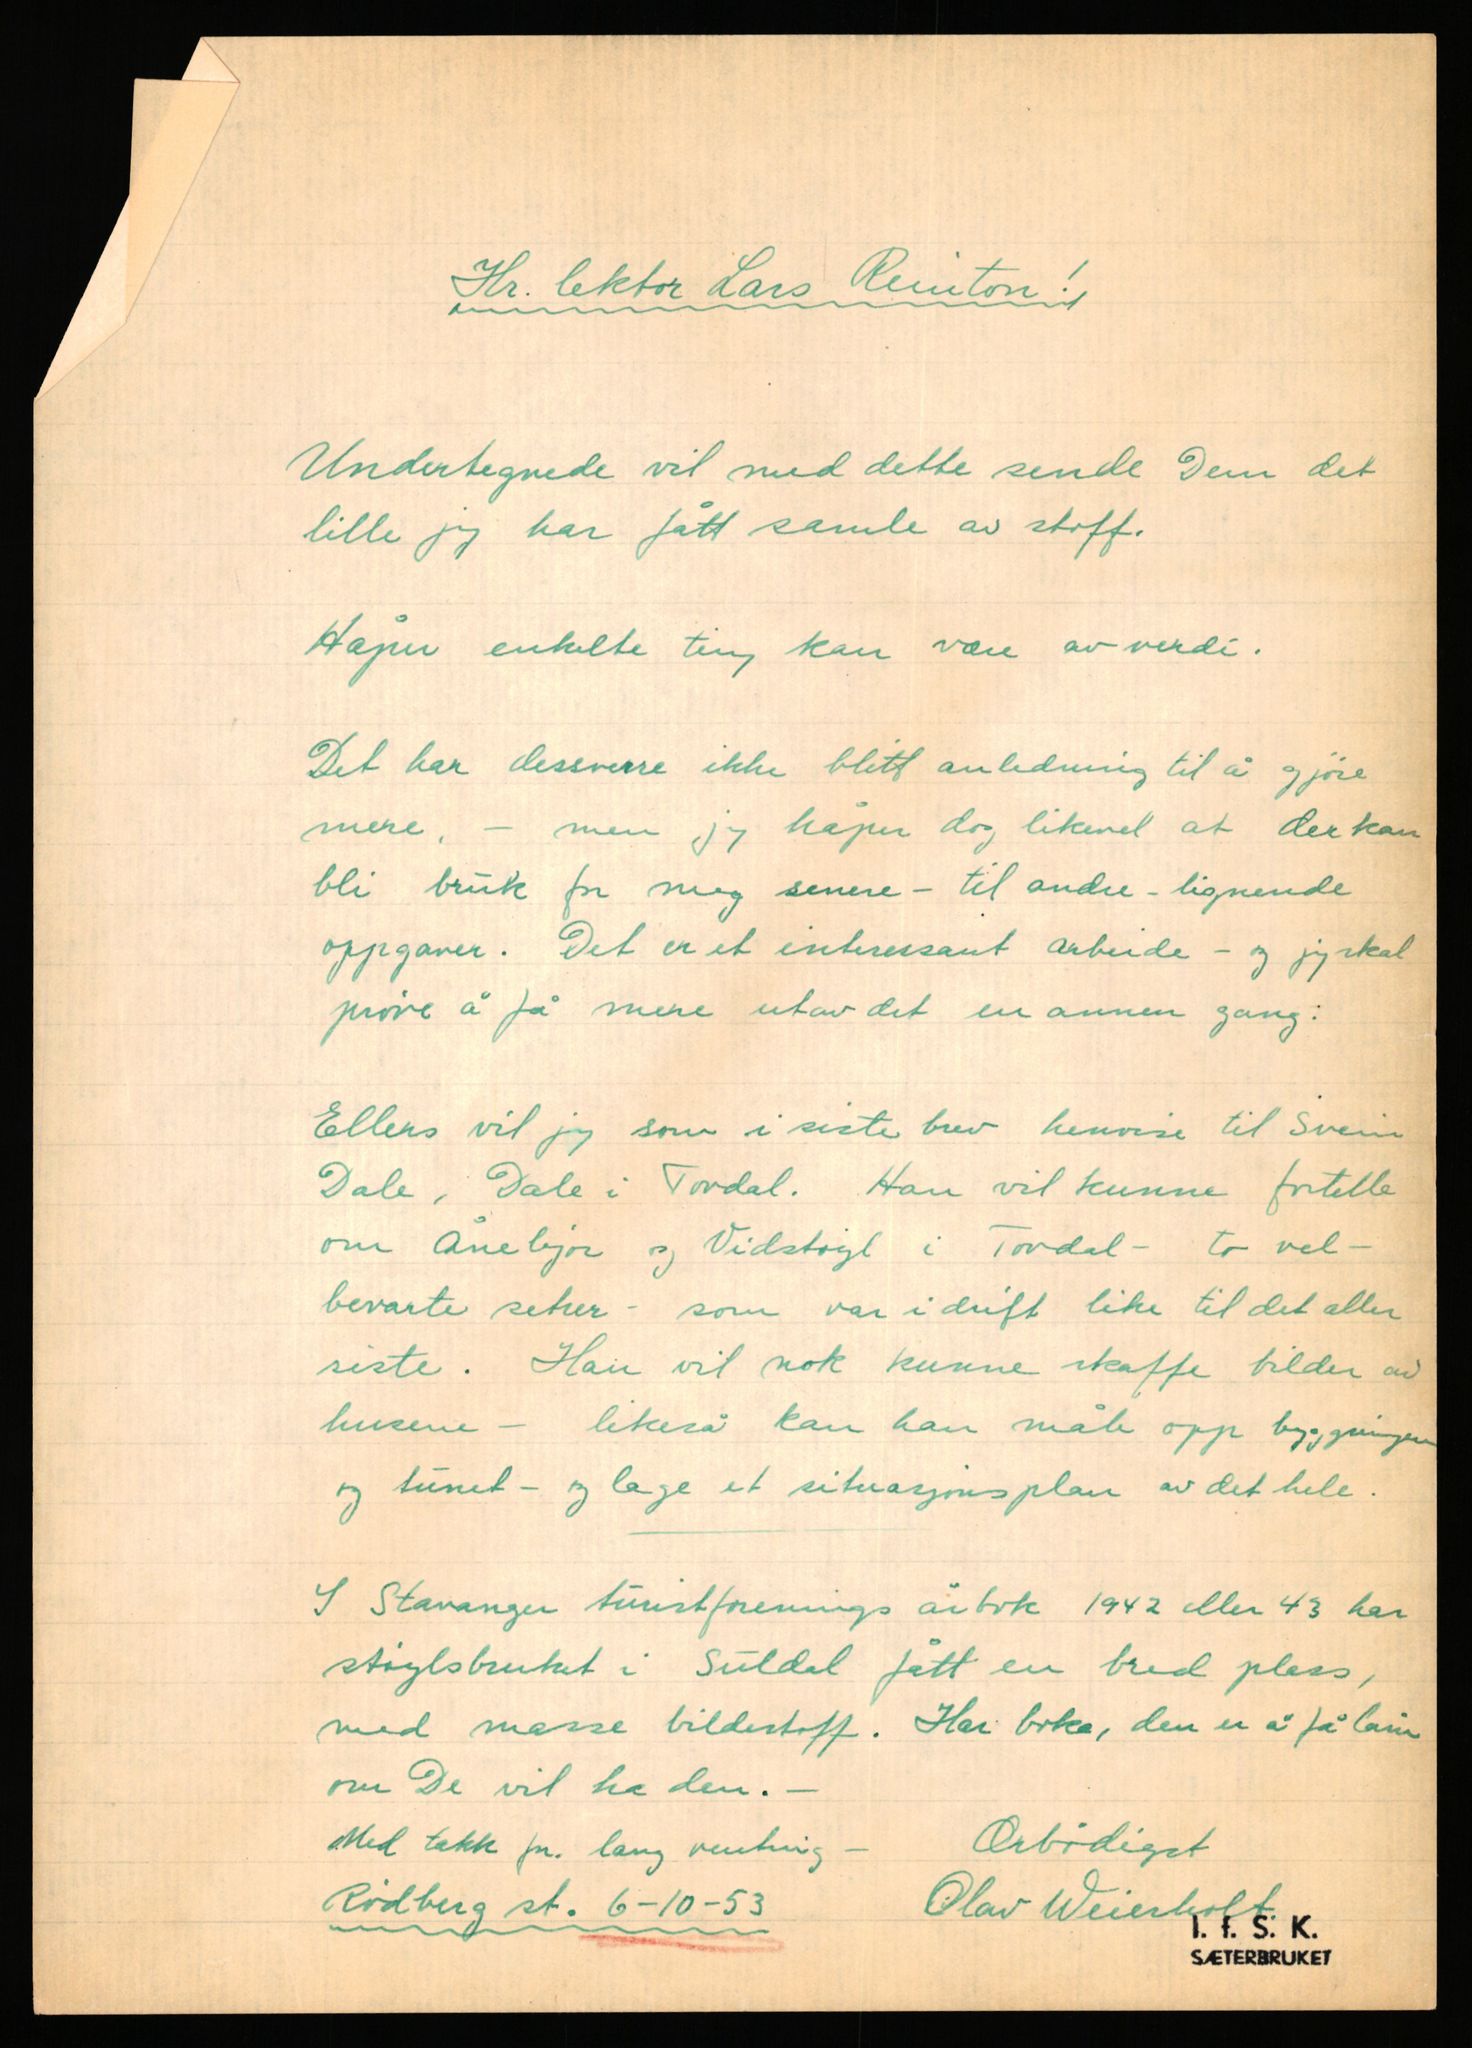 Hr. lektor Lars Reinton!
Undertegnede vil med dette sende Dem det
lille jeg har fått samle av stoff.
Håper enkelte ting kan være av verdi.
Det har dessverre ikke blitt anledning til å gjøre
mere, – men jeg håper dog likevel at der kan
bli bruk for meg senere – til andre – lignende
oppgaver. Det er et interessant arbeide – og jeg skal
prøve å få mere utav det en annen gang:
Ellers vil jeg som i siste brev henvise til Svein
Dale, Dale i Tovdal. Han vil kunne fortelle
om Ånebjør og Vidstøyl i Tovdal – to vel-
bevarte setrer – som var i drift like til det aller
siste. Han vil nok kunne skaffe bilder av
husene – likeså kan han måle opp byggningen
og tunet – og lage et situasjonsplan av det hele.
I Stavanger turistforenings årbok 1942 eller 43 har
støylsbruket i Suldal fått en bred plass,
med masse bildestoff. Har boka, den er å få låne
om De vil ha den. –
Med takk for. lang venting –
Ærbødigst
Rødberg st. 6-10-53
Olav Weierholt.
I. f. S. K.
SÆTERBRUKET